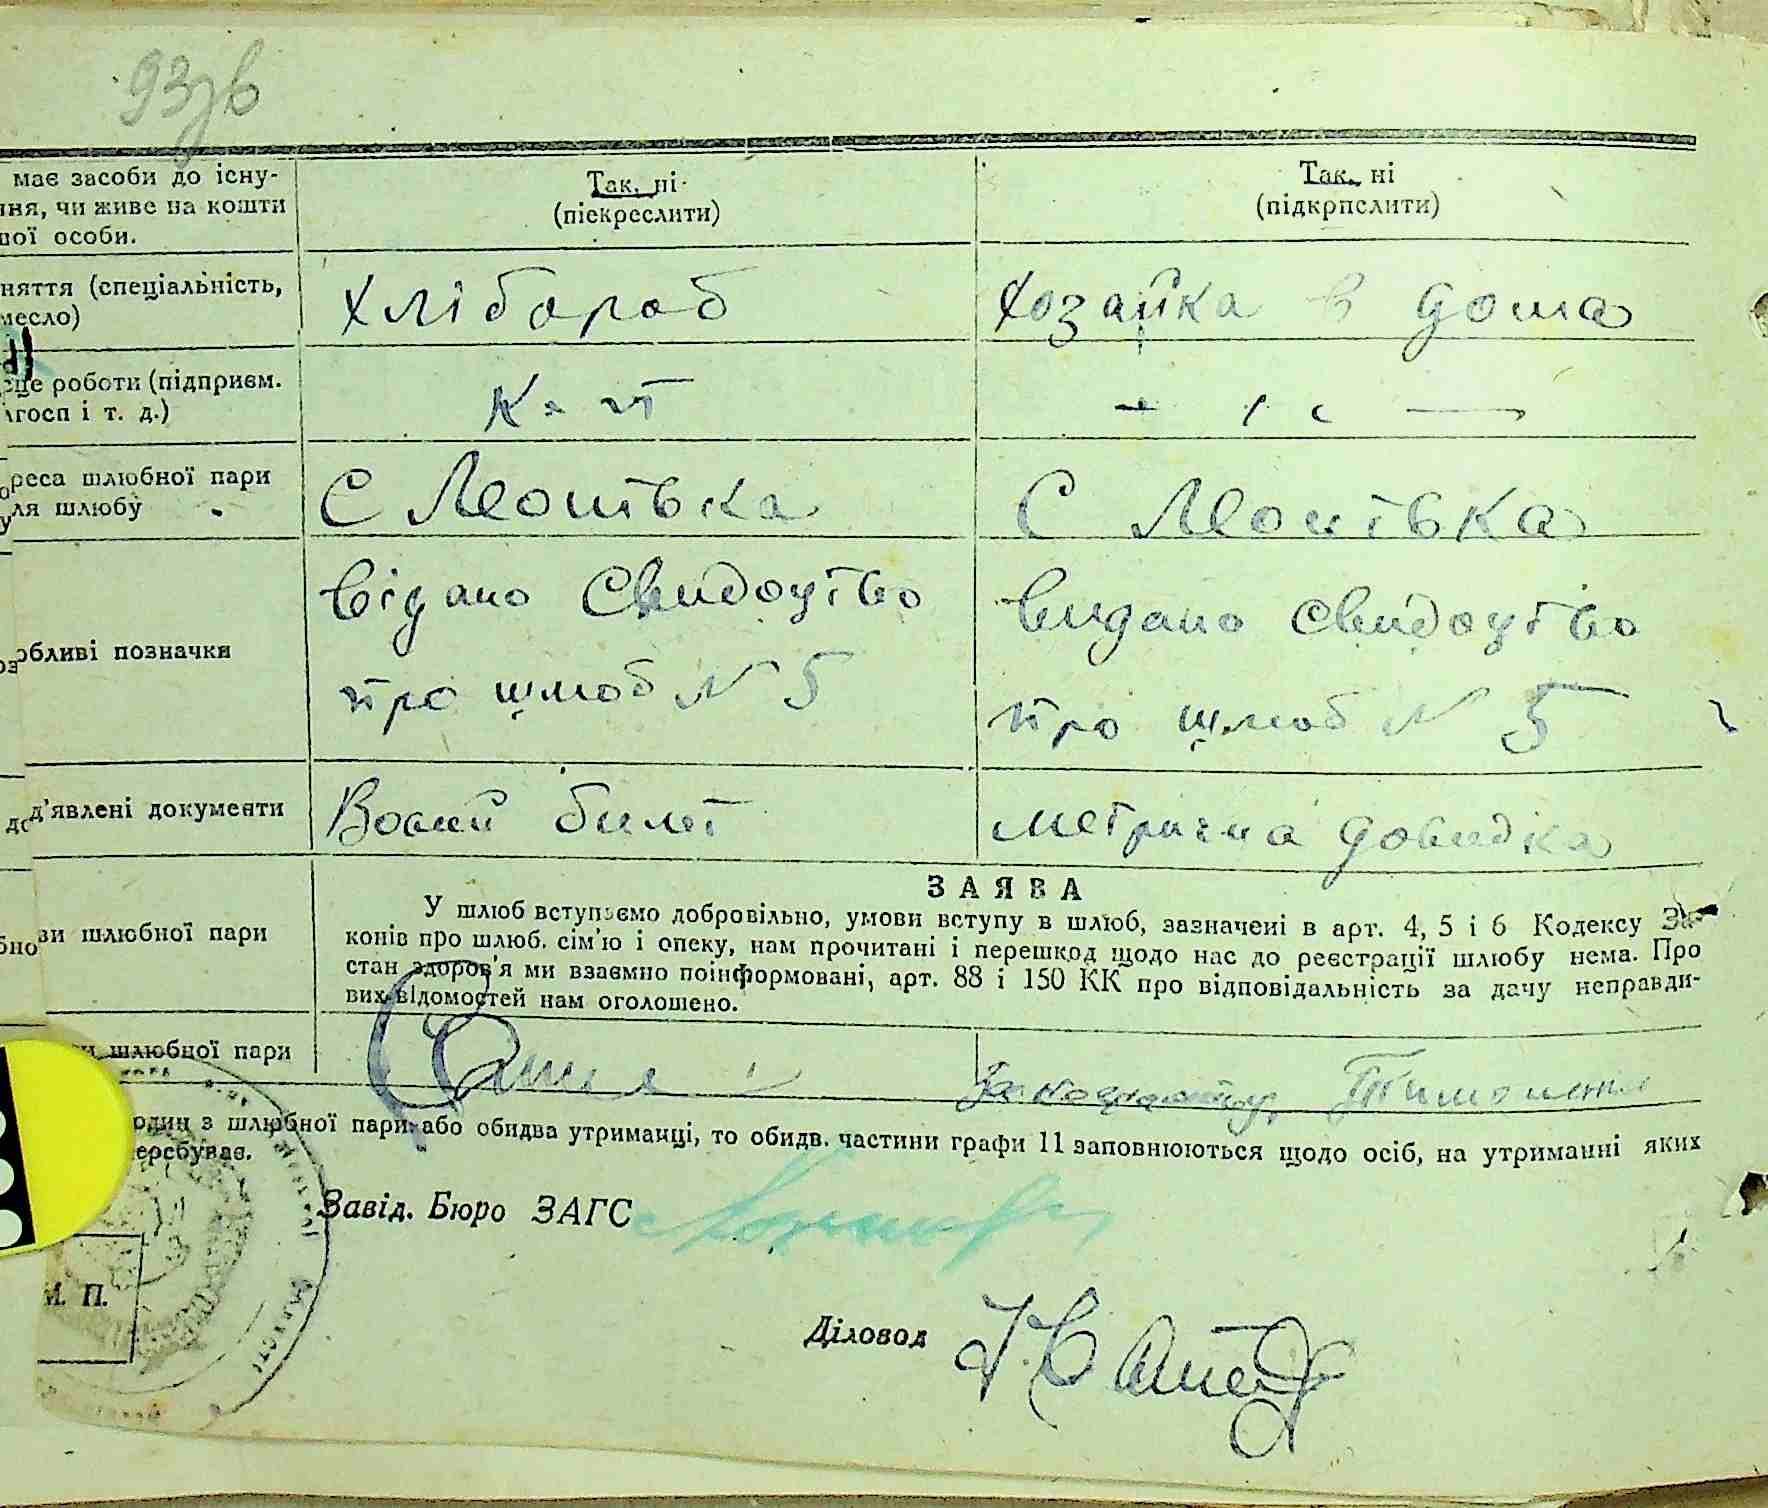 93зв
має засоби до існу-
ння, чи живе на кошти
шої особи.
Так, ні
(піекреслити)
Так, ні
(підкрпслити)
няття (спеціальність,
месло)
Хлібароб
Хозайка в дома
сце роботи (підприєм.
лгосп і т. д.)
К-п
реса шлюбної пари
ля шлюбу
С Меонівка
С Меонівка
обливі позначки
Відано Свидоцтво
про шлюб N 5
Видано свидоцтво
про шлюб N 5
д'явлені документи
Воений билет
метрична довидка
зи шлюбної пари
ЗАЯВА
У шлюб вступаємо добровільно, умови вступу в шлюб, зазначені в арт. 4, 5 і 6 Кодексу За-
конів про шлюб. сім'ю і опеку, нам прочитані і перешкод щодо нас до реєстрації шлюбу нема. Про
стан здоров'я ми взаємно поінформовані, арт. 88 і 150 КК про відповідальність за дачу неправди-
вих відомостей нам оголошено.
и шлюбної пари
один з шлюбної пари або обидва утриманці, то обидв. частини графи 11 заповнюються щодо осіб, на утриманні яких
еребуває.
Завід. Бюро ЗАГС
М. П.
Діловод